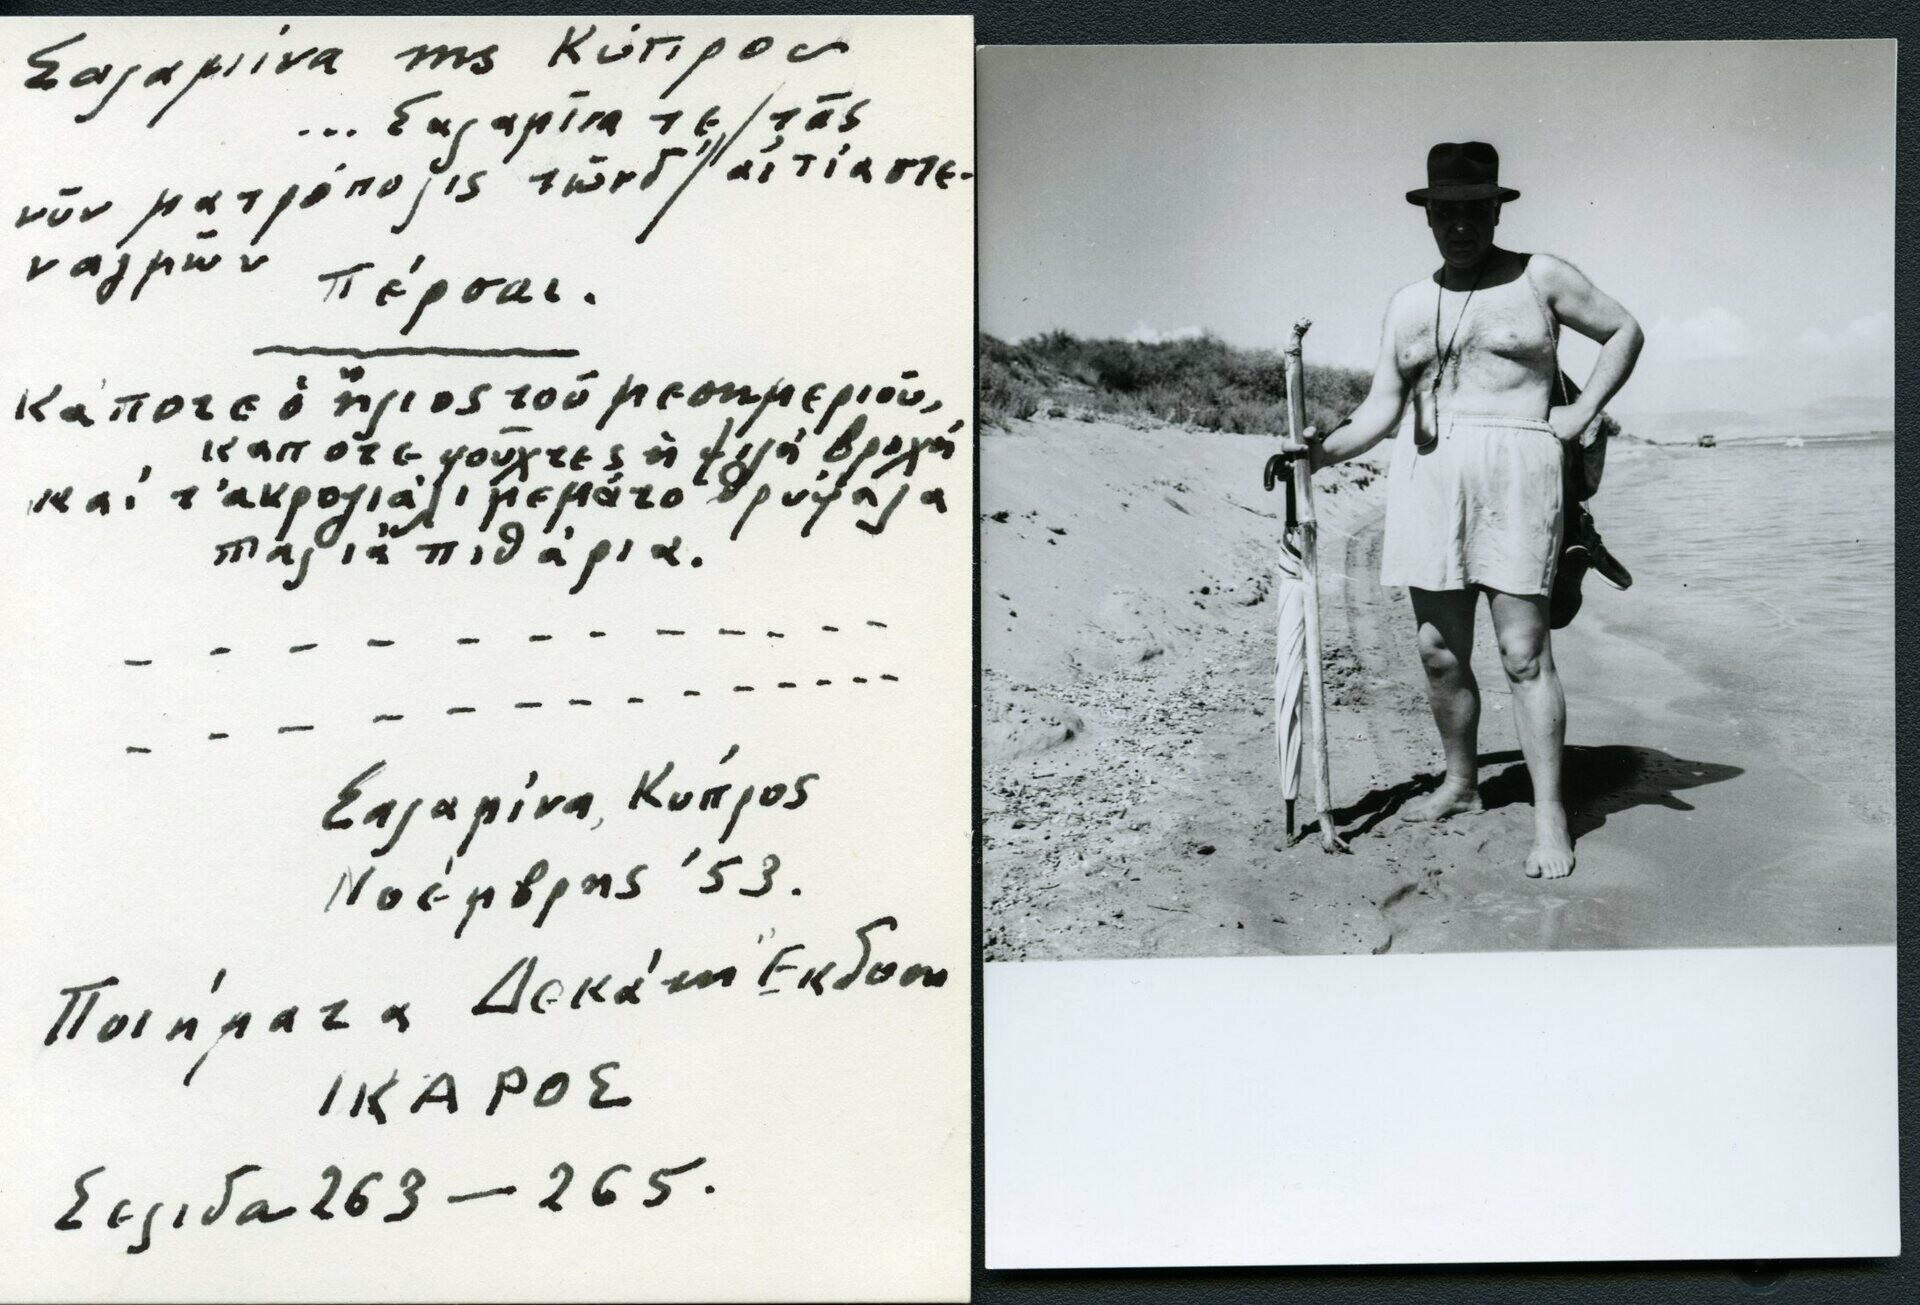 Σαλαμίνα της Κύπρου
... Σαλαμῖνα τε / τᾶς
νῦν ματρόπολις τῶνδ' // αἰτία στε-
ναγμῶν
Πέρσαι.
Κάποτε ὁ ἥλιος τοῦ μεσημεριοῦ,
κάποτε φοῦχτες ἡ ψιλή βροχή
καί τ' ἀκρογιάλι γεμάτο θρύψαλα
παλιά πιθάρια.
Σαλαμίνα, Κύπρος
Νοέμβρης '53.
Ποιήματα Δεκάτη Ἔκδοση
ΙΚΑΡΟΣ
Σελίδα 263 — 265.